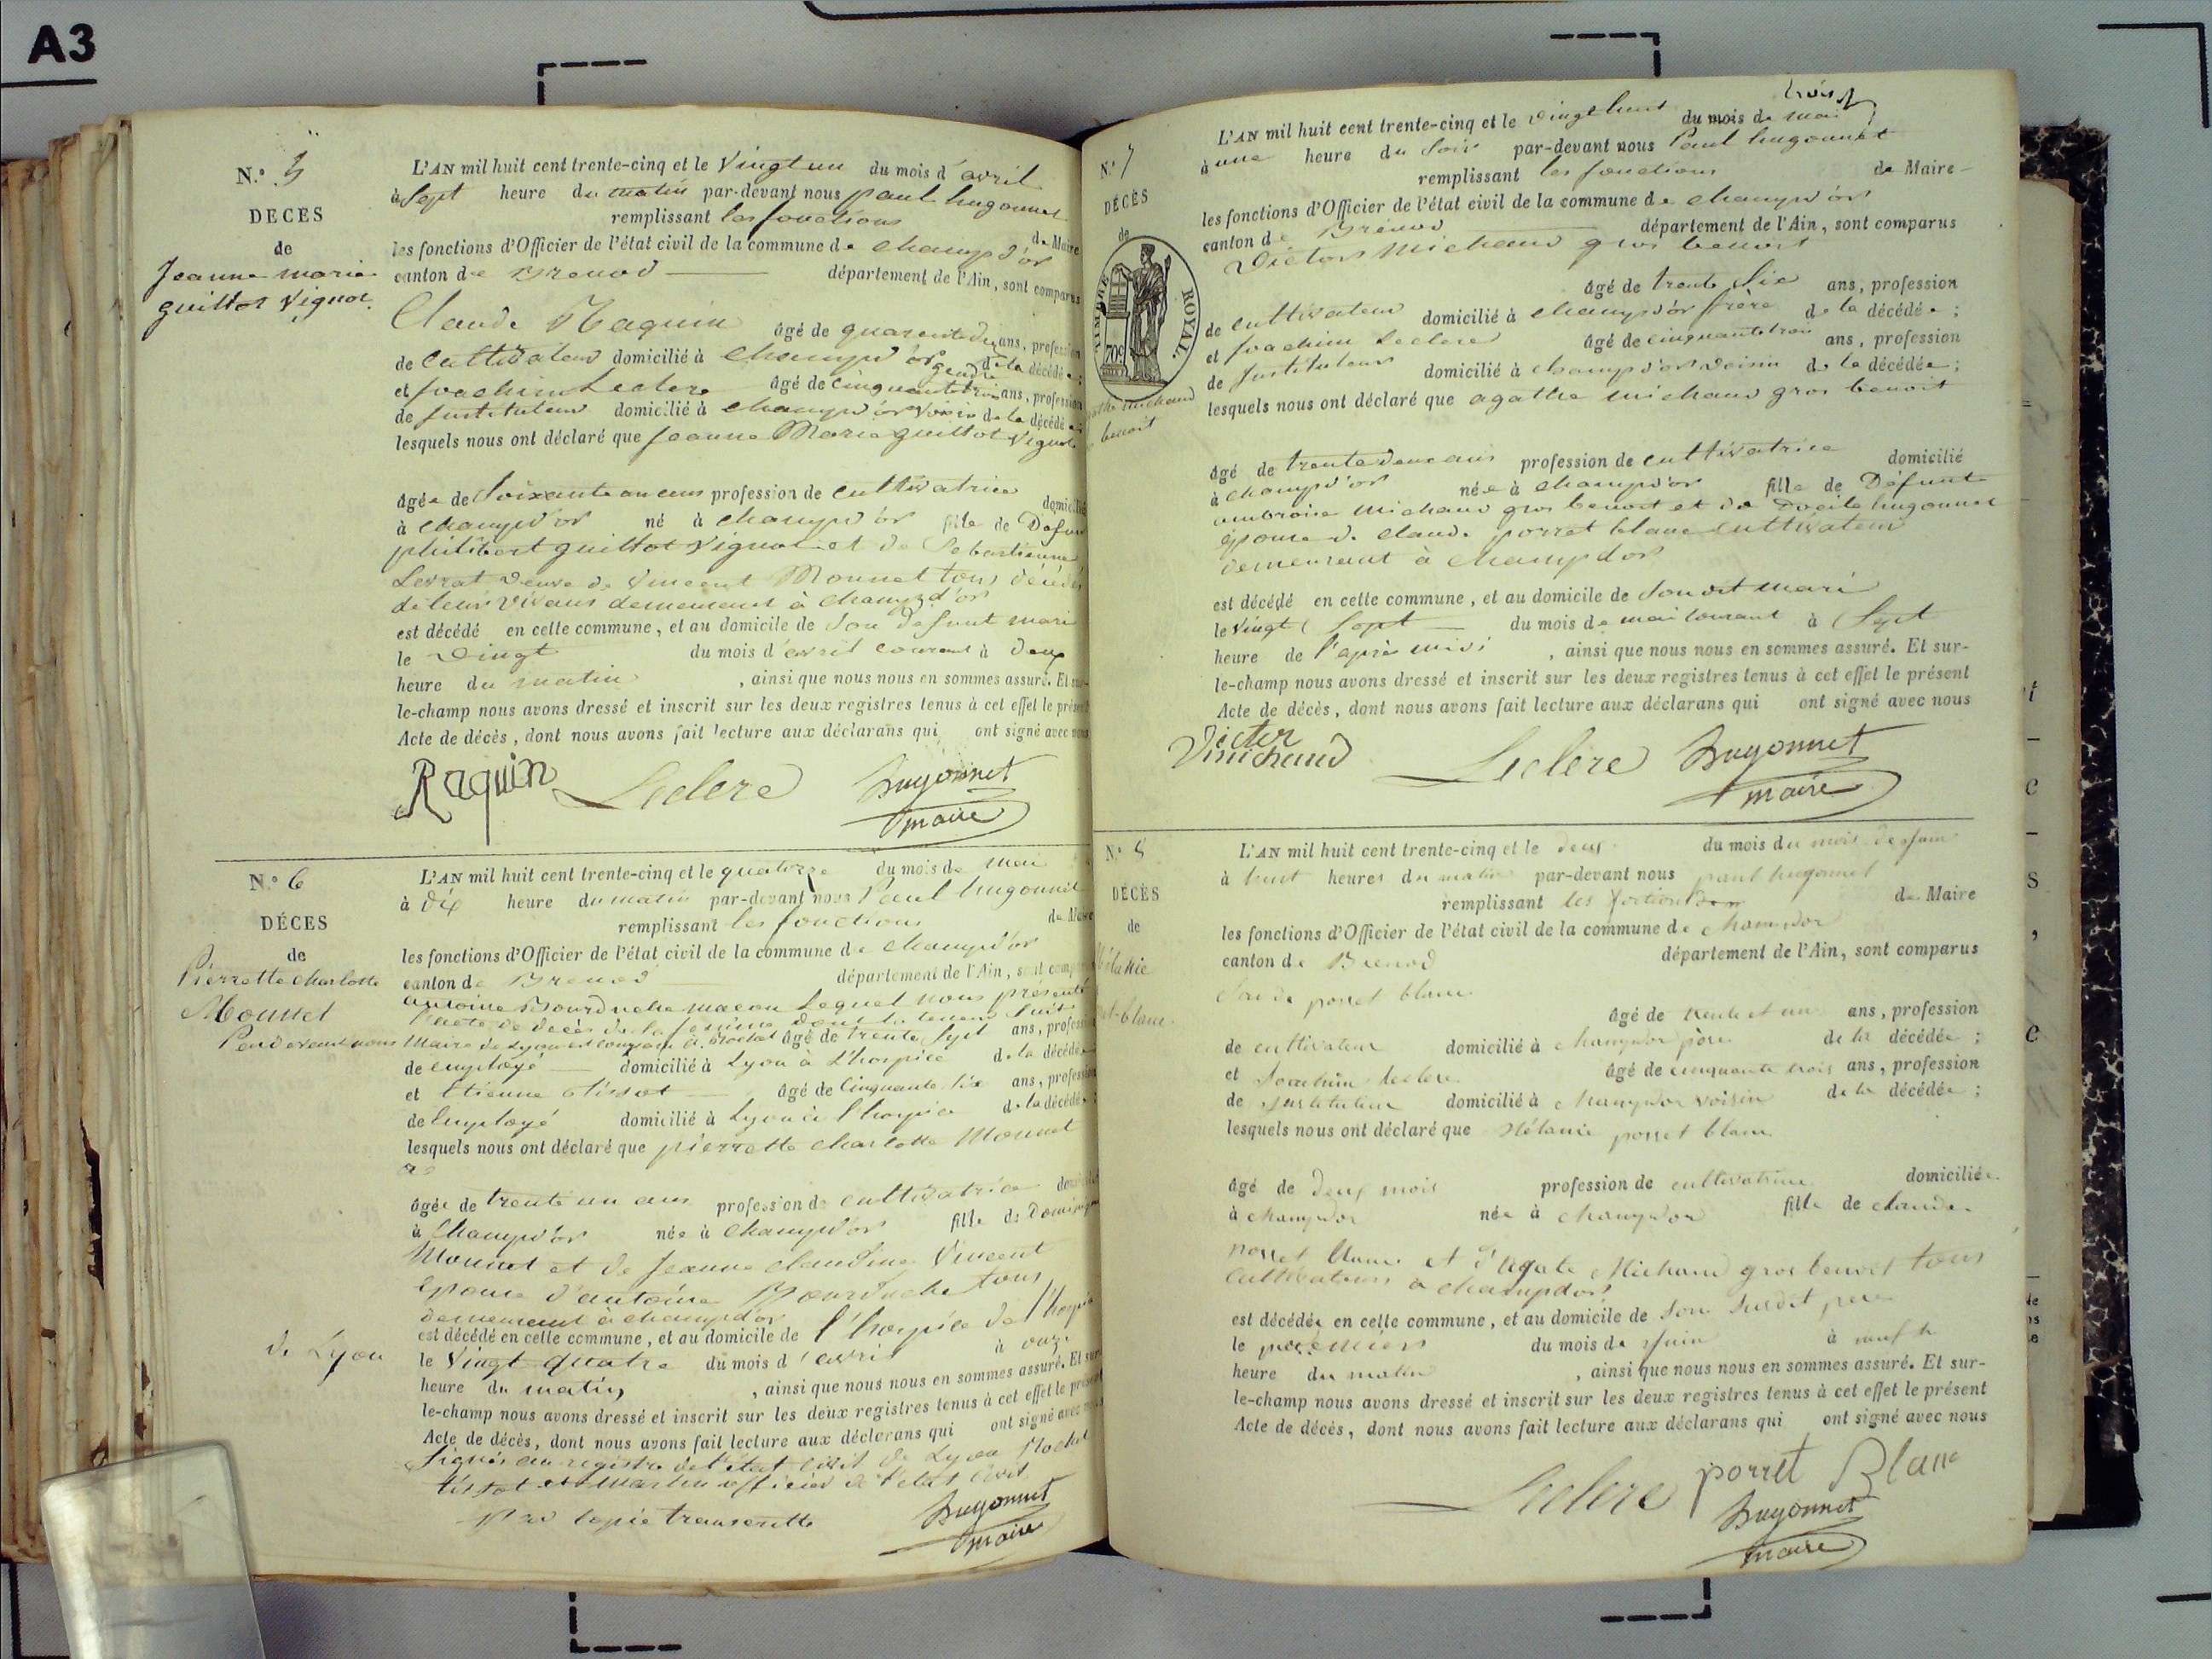 A3
N.° 5
DÉCÈS
de
Jeanne marie
guillot Vignot.
L'AN mil huit cent trente-cinq et le Vingt un du mois d'avril
à Sept heure du matin par-devant nous paul hugonnet
remplissant les fonctions de Maire
les fonctions d'Officier de l'état civil de la commune de champd'or
canton de Brenod département de l'Ain, sont comparus
Claude Raquin âgé de quarante deux ans, profession
de Cultivateur domicilié à champd'or gendre de la décédée;
et Joachim Leclere âgé de cinquante trois ans, profession
de Instituteur domicilié à champd'or Voisin de la décédée;
lesquels nous ont déclaré que Jeanne Marie guillot Vignot
âgée de Soixante un ans profession de cultivatrice domicilié
à champd'or né à champd'or fille de Defunt
philibert guillot Vignot et de Sebastienne
Levrat veuve de Vincent Monnet tous décédés
de leur vivans demeurant à champd'or
est décédé en cette commune, et au domicile de Son defunt mari
le Vingt du mois d'avril courant à deux
heure du matin, ainsi que nous nous en sommes assuré. Et sur-
le-champ nous avons dressé et inscrit sur les deux registres tenus à cet effet le présent
Acte de décès, dont nous avons fait lecture aux déclarans qui ont signé avec nous
Raquin Leclere hugonnet
maire
N.° 6
DÉCES
de
Pierrette Charlotte
Monnet
L'AN mil huit cent trente-cinq et le quatorze du mois de mai
à dix heure du matin par-devant nous Paul hugonnet
remplissant les fonctions de Maire
les fonctions d'Officier de l'état civil de la commune de champd'or
canton de Brenod département de l'Ain, sont comparus
antoine Bourduche maçon Lequel nous présente
l'acte de décès de la femme dont la teneur Suit
Pardevant nous Maire de Lyon est comparu Rochat âgé de trente Sept ans, profession
de employé domicilié à Lyon à L'hospice de la décédée
et Etienne tissot âgé de Cinquante Six ans, profession
de Employé domicilié à Lyon à l'hospice de la décédée;
lesquels nous ont déclaré que pierrette charlotte Monnet
âgée de trente un ans profession de cultivatrice
à champd'or née à champd'or fille de Dominique
Monnet et de Jeanne claudine Vincent
Epouse d'antoine Bourduche tous
demeurant à champd'or
est décédé en cette commune, et au domicile de l'hospice de l'hospice
de Lyon
le Vingt quatre du mois d'avril à onze
heure du matin, ainsi que nous nous en sommes assuré. Et sur
le-champ nous avons dressé et inscrit sur les deux registres tenus à cet effet le présent
Acte de décès, dont nous avons fait lecture aux déclarans qui ont signé avec nous
Signés au registre de l'état civil de Lyon Rochat
tissot et Martin officier de l'état civil
Par copie transcritte
hugonnet
maire
N.° 7
DÉCÈS
de
TIMBRE ROYAL.
70c
michaud
benoit
L'AN mil huit cent trente-cinq et le vingt huit du mois de mai
à une heure du Soir par-devant nous Paul hugonnet
remplissant les fonctions de Maire
les fonctions d'Officier de l'état civil de la commune de champd'or
canton de Brénod département de l'Ain, sont comparus
Victor Michaud gros benoit
âgé de trente Six ans, profession
de cultivateur domicilié à champd'or frère de la décédée;
et Joachim Leclere âgé de cinquante trois ans, profession
de Instituteur domicilié à champd'or voisin de la décédée;
lesquels nous ont déclaré que agathe michaud gros benoit
âgé de trente deux ans profession de cultivatrice domicilié
à champd'or née à champd'or fille de Défunt
ambroise michaud gros benoit et de hugonnet
épouse de claude porret blanc cultivateur
demeurant à champdor
est décédé en cette commune, et au domicile de Son dit mari
le Vingt Sept du mois de mai courant à Sept
heure de l'après midi, ainsi que nous nous en sommes assuré. Et sur-
le-champ nous avons dressé et inscrit sur les deux registres tenus à cet effet le présent
Acte de décès, dont nous avons fait lecture aux déclarans qui ont signé avec nous
Victer
michaud Leclere hugonnet
maire
N.° 8
DÉCÈS
de
Mélanie
L'AN mil huit cent trente-cinq et le deux du mois du mois de juin
à huit heures du matin par-devant nous paul hugonnet
remplissant les de Maire
les fonctions d'Officier de l'état civil de la commune de champdor
canton de Brenod département de l'Ain, sont comparus
Claude porret blanc
âgé de trente et un ans, profession
de cultivateur domicilié à champdor père de la décédée;
et Joachim leclere âgé de cinquante trois ans, profession
de instituteur domicilié à champdor voisin de la décédée;
lesquels nous ont déclaré que Mélanie porret blanc
âgé de deux mois profession de cultivatrice domiciliée
à champdor née à champdor fille de claude
porret blanc et d'agate Michaud gros benoit tous
cultivateurs à champdor
est décédée en cette commune, et au domicile de Son Susdit père
le premier du mois de Juin à neuf h
heure du matin, ainsi que nous nous en sommes assuré. Et sur-
le-champ nous avons dressé et inscrit sur les deux registres tenus à cet effet le présent
Acte de décès, dont nous avons fait lecture aux déclarans qui ont signé avec nous
Leclere porret Blanc
hugonnet
maire